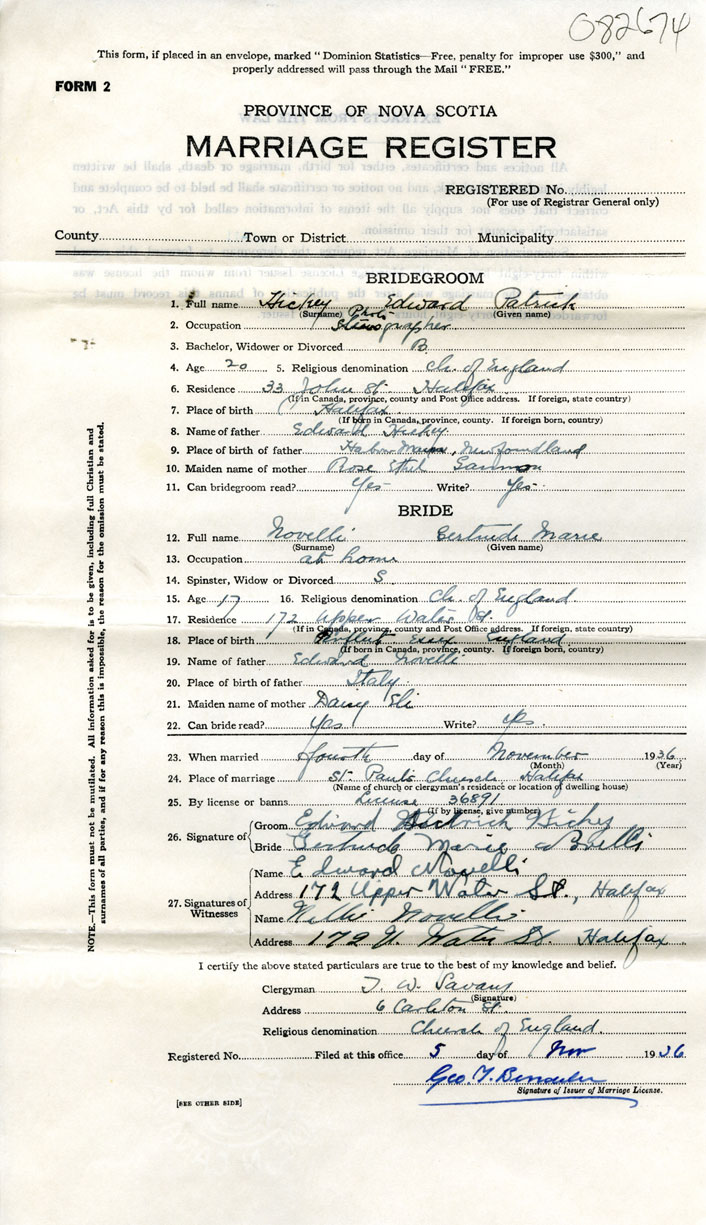 082674
This form, if placed in an envelope, marked "Dominion Statistics—Free, penalty for improper use $300," and
properly addressed will pass through the Mail "FREE."
FORM 2
PROVINCE OF NOVA SCOTIA
MARRIAGE REGISTER
REGISTERED No.
(For use of Registrar General only)
County Town or District Municipality
BRIDEGROOM
1. Full name Hickey Edward Patrick
(Surname) (Given name)
2. Occupation Photographer
3. Bachelor, Widower or Divorced B
4. Age 20 5. Religious denomination Ch. of England
6. Residence 33 John St. Halifax
(If in Canada, province, county and Post Office address. If foreign, state country)
7. Place of birth Halifax
(If born in Canada, province, county. If foreign born, country)
8. Name of father Edward Hickey
9. Place of birth of father Harbor Main, Newfoundland
10. Maiden name of mother Rose Ethel
11. Can bridegroom read? Yes Write? Yes
BRIDE
12. Full name Novelli Gertrude Marie
(Surname) (Given name)
13. Occupation at home
14. Spinster, Widow or Divorced S
15. Age 17 16. Religious denomination Ch. of England
17. Residence 172 Upper Water St.
(If in Canada, province, county and Post Office address. If foreign, state country)
18. Place of birth Essex England
(If born in Canada, province, county. If foreign born, country)
19. Name of father Edward Novelli
20. Place of birth of father Italy
21. Maiden name of mother Daisy Eli
22. Can bride read? Yes Write? yes
23. When married fourth day of November 1936
(Month) (Year)
24. Place of marriage St. Paul's Church Halifax
(Name of church or clergyman's residence or location of dwelling house)
25. By license or banns License 36891
(If by license, give number)
26. Signature of Groom Edward Hickey
Bride Gertrude Marie Novelli
27. Signatures of Witnesses Name Edward Novelli
Address 172 Upper Water St., Halifax
Name Willie Novelli
Address 172 U. Water St. Halifax
NOTE.—This form must not be mutilated. All information asked for is to be given, including full Christian and
surnames of all parties, and if for any reason this is impossible, the reason for the omission must be stated.
I certify the above stated particulars are true to the best of my knowledge and belief.
Clergyman T. W. Savary
(Signature)
Address 6 Carleton St.
Religious denomination Church of England
Registered No. Filed at this office 5 day of Nov 1936
Geo. T.
Signature of Issuer of Marriage License.
[SEE OTHER SIDE]